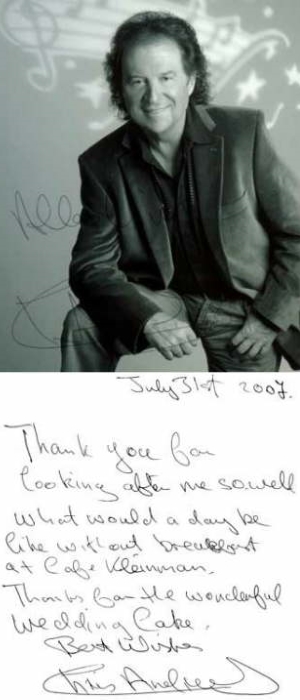 Allan
July 31st 2007.
Thank you for
looking after me so well
What would a day be
like without breakfast
at Cafe Kleinman.
Thanks for the wonderful
Wedding Cake.
Best Wishes
Chris Andrews